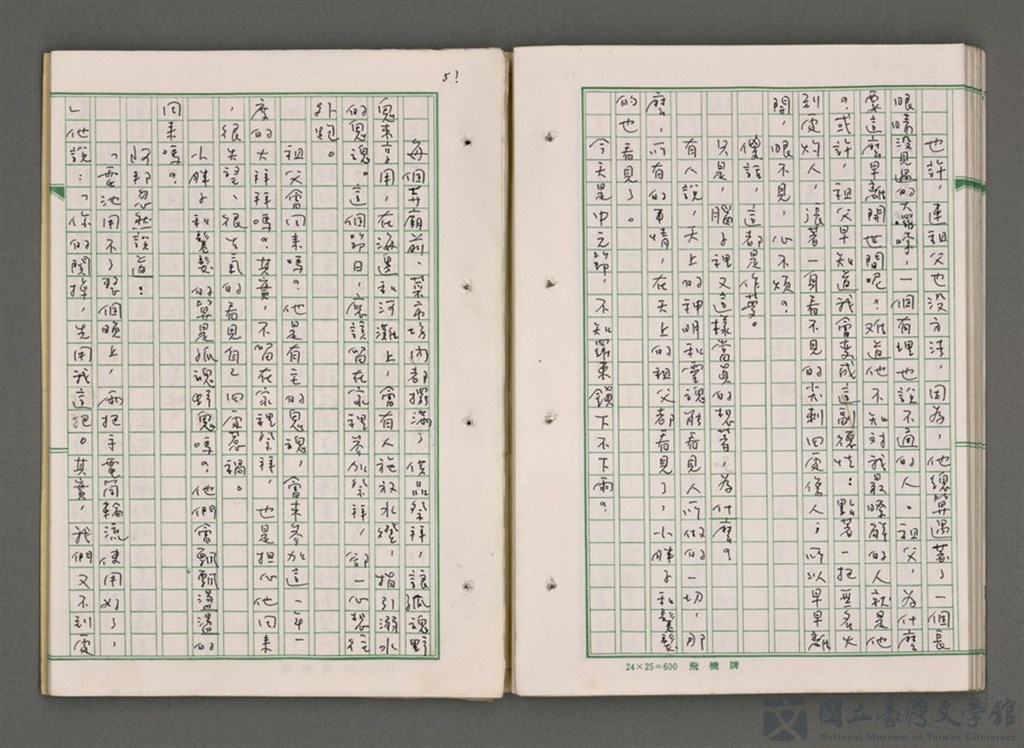 也許，連祖父也沒方法，因為，他總算遇著了一個長
眼睛沒見過的大囉嗦，一個有理也說不通的人。祖父，為什麼
要這麼早離開世間呢？難道他不知對我最瞭解的人就是他
。或許，祖父早知道我會變成這副德性：點著一把無名火
到處灼人，張著一身看不見的尖刺四處傷人；所以早早離
開，眼不見，心不煩？
傻話，這都是作夢。
只是，腦子裡又這樣當真的想著，為什麼？
有人說，天上的神明和靈魂能看見人所做的一切，那
麼，所有的事情，在天上的祖父都看見了，小胖子和鬈髮
的也看見了。
今天是中元節，不知羅東鎮下不下雨？
24×25=600 飛機牌
51
每個寺廟前、菜市場內都擺滿了供品祭拜，讓孤魂野
鬼來享用，在海邊和河灘上，會有人施放水燈，指引溺水
的鬼魂。這個節日，應該留在家裡參加祭拜，卻一心想往
外跑。
祖父會回來嗎？他是有主的鬼魂，會來參加這一年一
度的大拜拜嗎？其實，不留在家裡祭拜，也是擔心他回來
，很失望、很生氣的看見自己四處惹禍。
小胖子和鬈髮的算是孤魂野鬼嗎？他們會飄飄盪盪的
回來嗎？
阿邦忽然說道：
「電池用不了那個晚上，兩把手電筒輪流使用好了，
」他說：「你的關掉，先用我這把。其實，我們又不到處
國立臺灣文學館
National Museum of Taiwan Literature